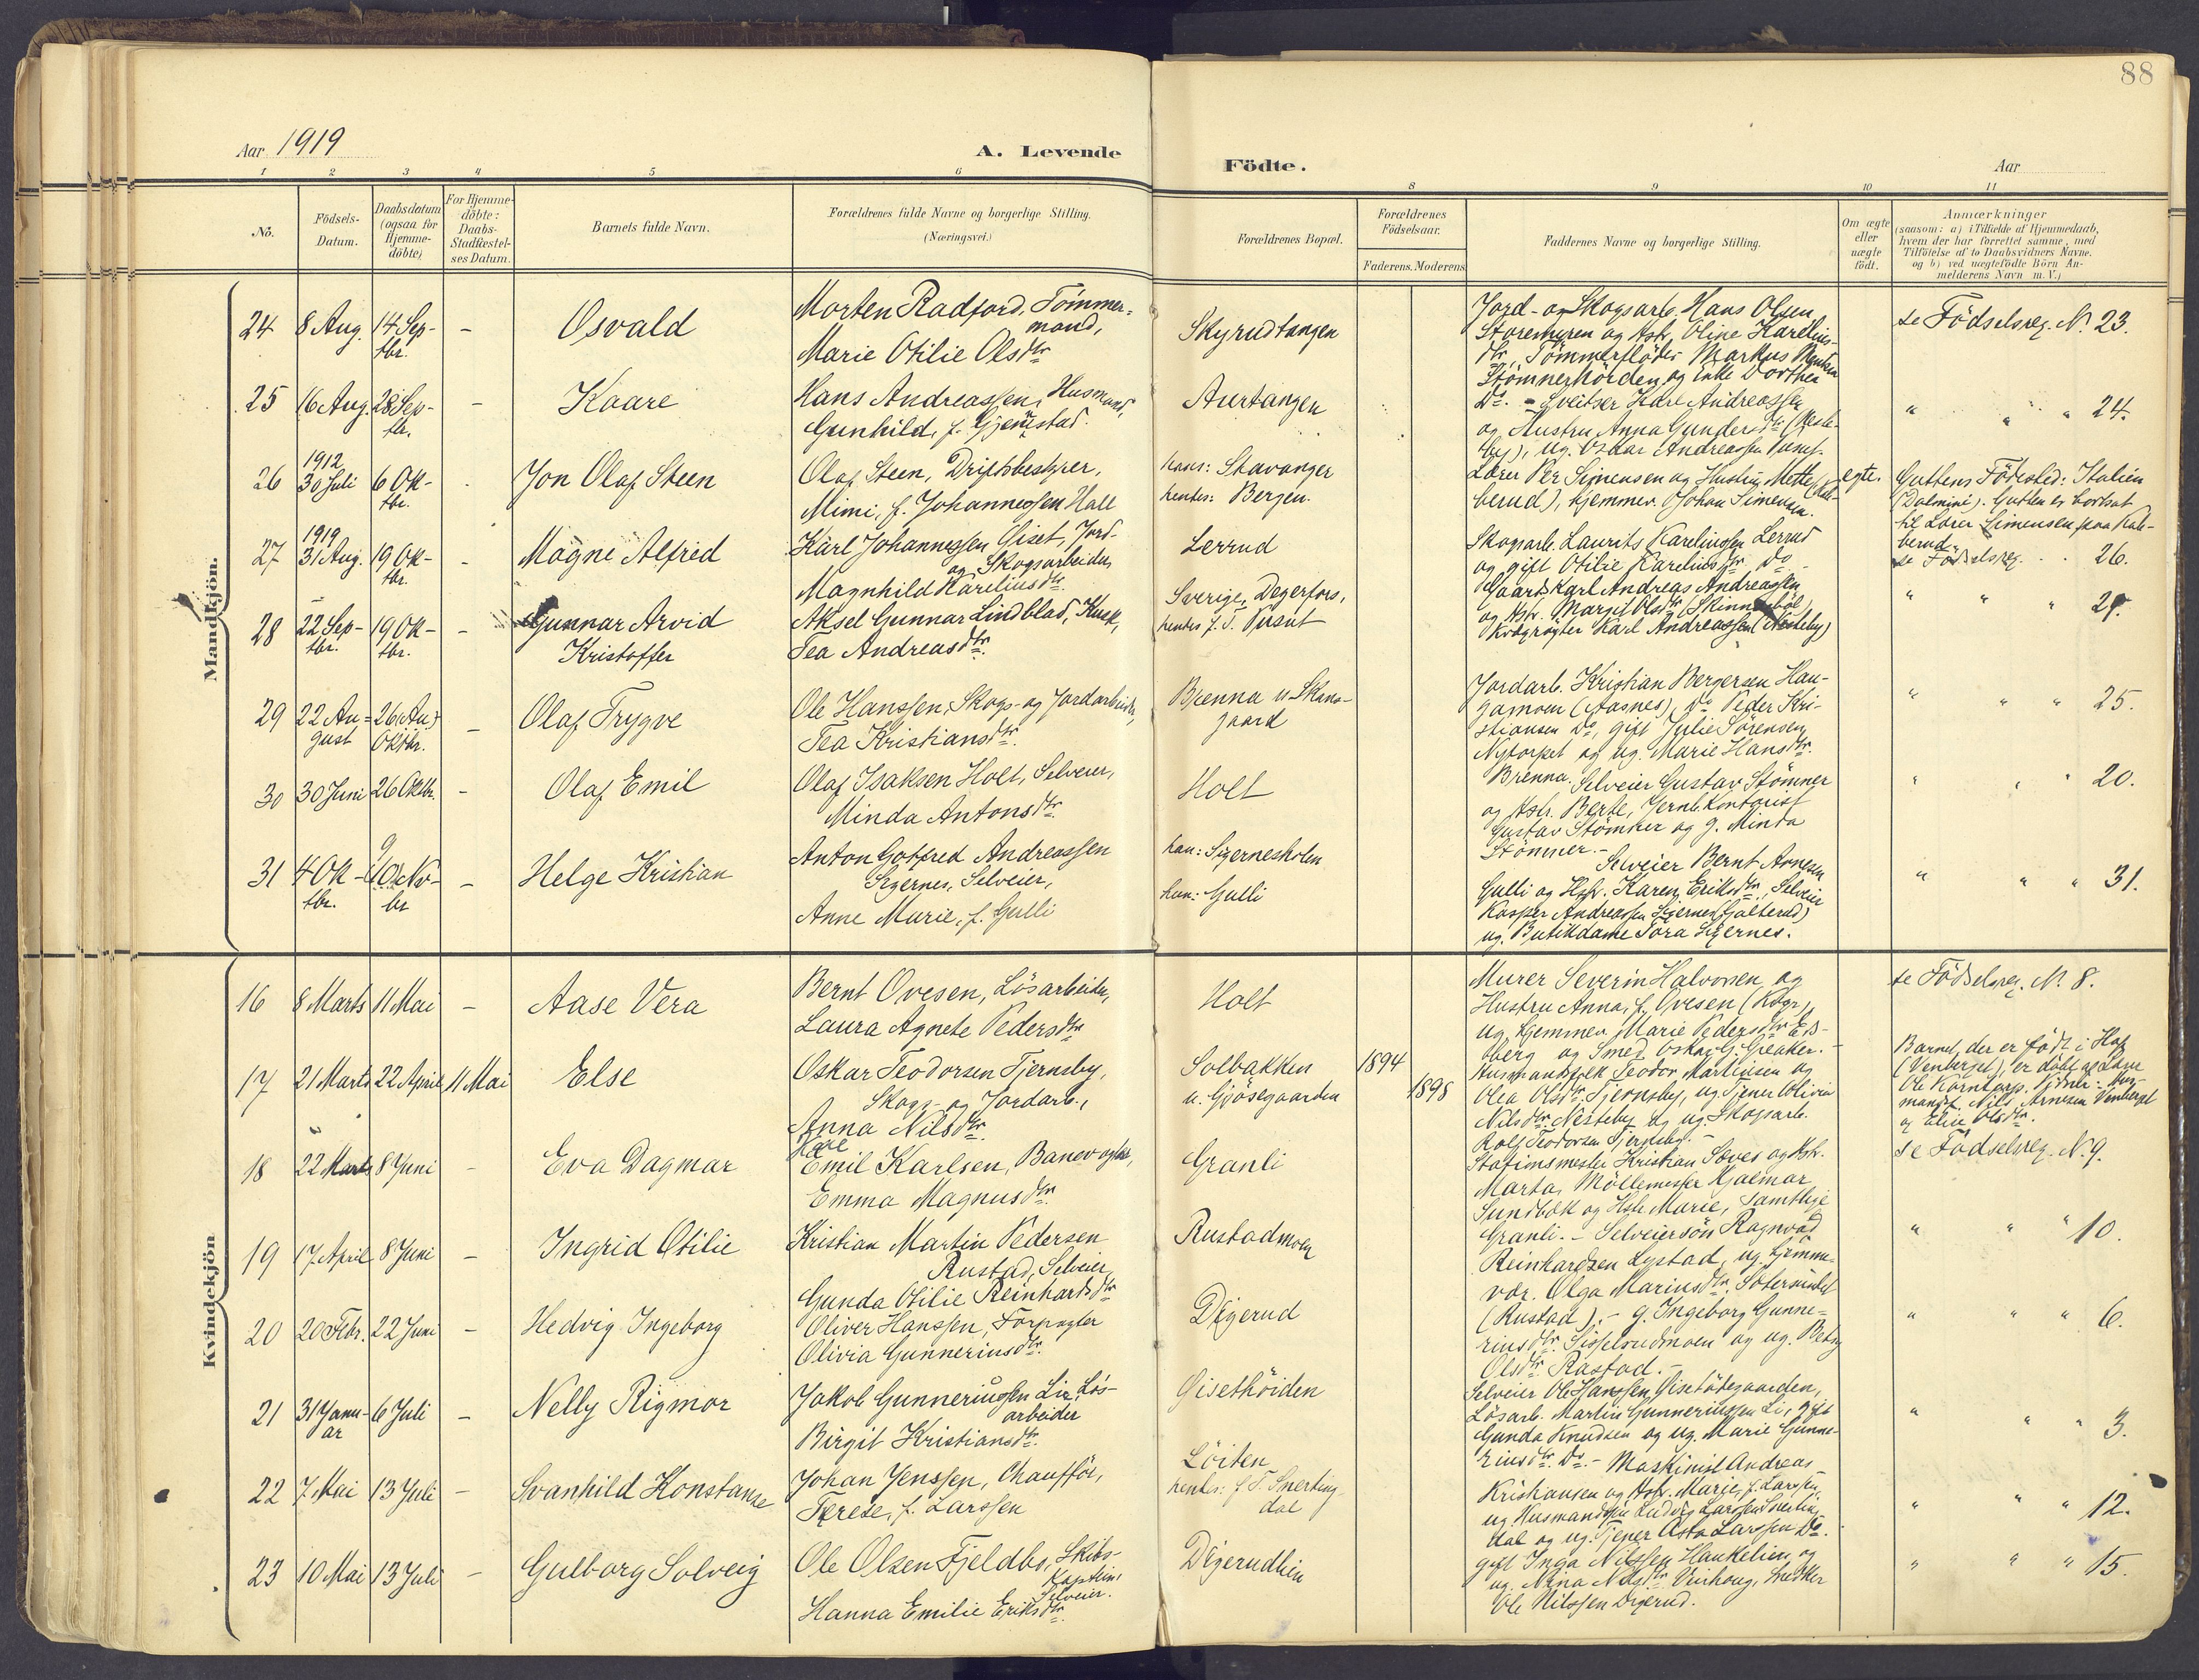 88
Aar 1919
A. Levende
Födte.
Aar
1 2 3 4 5 6 8 9 10 11
No.
Födsels-Datum.
Daabsdatum (ogsaa for Hjemme-döbte)
For Hjemme-döbte: Daabs-Stadfæstel-ses Datum.
Barnets fulde Navn.
Forældrenes fulde Navne og borgerlige Stilling.
(Næringsvei.)
Forældrenes Bopæl.
Forældrenes Födselsaar.
Faderens. Moderens.
Faddernes Navne og borgerlige Stilling.
Om ægte eller uægte födt.
Anmærkninger
(saasom: a) i Tilfælde af Hjemmedaab,
hvem der har forrettet samme, med
Tilföielse af to Daabsvidners Navne.
og b) ved uægtefödte Börn An-
melderens Navn m. V.)
Mandkjön.
24 8 Aug. 14 Sep-tbr. - Osvald
Morten Radford, Tömmer-mand,
Marie Otilie Olsdtr
Skyrudtangen
Jord- og Skogsarb. Hans Olsen
og Hstr. Oline Karelius-
dtr, Tömmerflöder Markus
og Enke Dorthea
Do. -
se Födselsreg. N. 23.
25 16 Aug. 28 Sep-tbr. - Kaare
Hans Andreassen, Husmand,
Gunhild, f. Gjennestad.
Aurtangen
Sveitser Karl Andreassen
og Hustru Anna Gundersdtr
ug. Oskar Andreassen Pusut.
" " " 24.
26 1912 30 Juli 6 Ok-tbr. Jon Olaf Steen
Olaf Steen, Driftsbestyrer,
Mimi, f. Johannessen Hall
hans: Stavanger
hendes: Bergen.
Lærer Per Simensen og Hustru Mette (Kal-
berud), hjemmev. Johan Simensen.
egte.
Guttens Födested: Italien
(Dalmine). Gutten er bortsat
til Lærer Simensen paa Kal-
berud.
27 1919 31 Aug. 19 Ok-tbr. - Magne Alfred
Karl Johannessen Giset, Jord-
og Skogsarbeider,
Magnhild Kareliusdtr
Lerrud
Skogsarb. Laurits Kareliussen Lerrud
og gift Otilie Kareliusdtr Do -
se Födselsreg. " 26.
28 22 Sep-tbr. 19 Ok-tbr. - Gunnar Arvid
Kristoffer
Aksel Gunnar Lindblad, Kusk,
Tea Andreasdtr.
Sverige, Degerfors,
hendes f. T. Pusut
Gaardb. Karl Andreas Andreassen
og Hstr. Margit Olsdtr (Skinnesböl)
Kvægrögter Karl Andreassen (Nesteby)
" " " 29.
29 22 Au-gust 26 (Au) Oktbr. - Olaf Trygve
Ole Hanssen, Skogs- og Jordarbeider,
Tea Kristiansdtr.
Brenna u. Skans-
gaard
Jordarb. Kristian Bergersen Hau-
gamoen (Aasnes), Do Peder Kri-
stiansen Do, gift Julie Sörensen
Nytorpet og ug. Marie Hansdtr.
Brenna.
" " " 25.
30 30 Juni 26 Oktbr. - Olaf Emil
Olaf Isaksen Holt, Selveier,
Minda Antonsdtr.
Holt
Selveier Gustav Stömner
og Hstr. Berte, Jernb. Kontorist
Gustav Stömner og g. Minda
Stömner. -
" " " 20.
31 4 Ok-tbr. 9 Nov-br - Helge Kristian
Anton Gotfred Andreassen
Sigernes, Selveier,
Anne Marie, f. Gulli
han: Sigernesholen
hun: Gulli
Selveier Bernt Arnesen
Gulli og Hstr. Karen Eriksdtr, Selveier
Kasper Andreassen Sigernes (Galterud)
ug. Butikdame Tora Sigernes.
" " " 31.
Kvindekjön
16 8 Marts 11 Mai - Aase Vera
Bernt Ovesen, Lösarbeider,
Laura Agnete Pedersdtr
Holt
Murer Severin Halvorsen og
Hustru Anna, f. Ovesen
ug. hjemmev. Marie Pedersdtr Eds-
berg og Smed Oskar G. Greaker. -
se Födselsreg. N. 8.
17 21 Marts 22 April 11 Mai Else
Oskar Teodorsen Tjernsby,
Skogs- og Jordarb.,
Anna Nilsdtr.
Solbakken
u. Gjösegaarden
1894
1898
Teodor Martinsen og
Olea Olsdtr. Tjernsby, ug. Tjener Olivia
Nilsdtr Nesteby og ug. Skogsarb.
Rolf Teodorsen Tjernsby. -
Barnet, der er födt i Hof
(Venberget), er döbt af Lærer
Ole Korntorp. Vidner: Hus-
mandk. Nils Arnesen Venberget
og Eline Olsdtr.
18 22 Marts 8 Juni - Eva Dagmar
Karl
Emil Karlsen, Banevogter,
Emma Magnusdtr.
Granli
Stationsmester Kristian Sæves og Hstr.
Marta, Möllemester Hjalmar
Sundbøk og Hstr Marie, samtlige
Granli. -
se Födselsreg. N. 9.
19 17 April 8 Juni - Ingrid Otilie
Kristian Martin Pedersen
Rustad, Selveier,
Gunda Otilie Reinhartsdtr
Rustadmoen
Selveiersön Ragnvad
Reinhardsen Lystad, ug. hjemme-
vær. Olga Mariusdtr.
(Rustad). -
" " " 10.
20 20 Febr. 22 Juni - Hedvig Ingeborg
Oliver Hanssen, Forpagter
Olivia Gunneriusdtr.
Digerud
g. Ingeborg Gunne-
riusdtr. Sisselrudmoen og ug. Betsy
Olsdtr Rastad. -
" " " 6.
21 31 Janu-ar 6 Juli - Nelly Rigmor
Jakob Gunneriussen Lie, Lös-
arbeider
Birgit Kristiansdtr.
Gisethöiden
Selveier Ole Hanssen Gisetödegaarden,
Lösarb. Martin Gunneriussen Li, gift
Gunda Knudsen og ug. Marie Gunne-
riusdtr. Do. -
" " " 3.
22 7 Mai 13 Juli - Svanhild Konstanse
Johan Jenssen, Chauffför,
Terese, f. Larssen
Löiten
hendes: f. T. Snerting-
dal
Maskinist Andreas
Kristiansen og Hstr. Marie, f. Larssen,
ug. Husmandssön Ludvig Larssen Snerting-
dal og ug. Tjener Asta Larssen Do.
" " " 12.
23 10 Mai 13 Juli - Gulborg Solveig
Ole Olsen Fjeldbo, Skibs-
Kaptein,
Selveier.
Hanna Emilie Eriksdtr
Digerudlien
gift Inga Nilssen Haukelien og
ug. Nina Nilsdtr Vinhaug, Snedker
Ole Nilssen Digerud.
" " " 15.